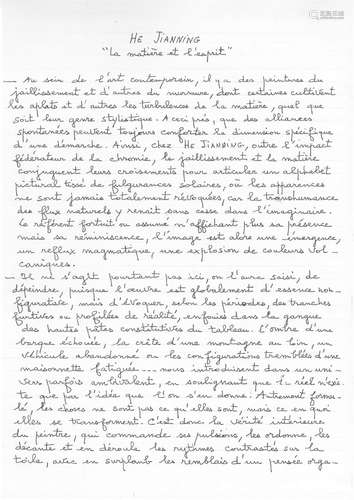 HE JIANNING
"La matière et l'esprit"
— Au sein de l'art contemporain, il y a des peintures du
jaillissement et d'autres du murmure, dont certaines cultivent
les aplats et d'autres les turbulences de la matière, quel que
soit leur genre stylistique. A ceci près, que des alliances
spontanées peuvent toujours conforter la dimension spécifique
d'une démarche. Ainsi, chez HE JIANNING, outre l'impact
fédérateur de la chromie, le jaillissement et la matière
conjuguent leurs croisements pour articuler un alphabet
pictural tissé de fulgurances solaires, où les apparences
ne sont jamais totalement révoquées, car la transhumance
des flux naturels y renaît sans cesse dans l'imaginaire.
Le référent fortuit ou assumé n'affichant plus sa présence
mais sa réminiscence, l'image est alors une émergence,
un reflux magmatique, une explosion de couleurs vol
caniques.
— Il ne s'agit pourtant pas ici, on l'aura saisi, de
dépeindre, puisque l'œuvre est globalement d'essence non-
figurative, mais d'évoquer, selon les périodes, des tranches
furtives ou profilées de réalité, enfouies dans la gangue
des hautes pâtes constitutives du tableau. L'ombre d'une
barque échouée, la crête d'une montagne au loin, un
véhicule abandonné ou les configurations tremblées d'une
maisonnette fatiguée --- nous introduisent dans un uni-
vers parfois ambivalent, en soulignant que le réel n'exis-
te que par l'idée que l'on s'en donne. Autrement formu-
lé, les choses ne sont pas ce qu'elles sont, mais ce en quoi
elles se transforment. C'est donc la vérité intérieure
du peintre, qui commande ses pulsions, les ordonne, les
décante et en déroule les rythmes contrastés sur la
toile, avec en surplomb les remblais d'un pensée orga-